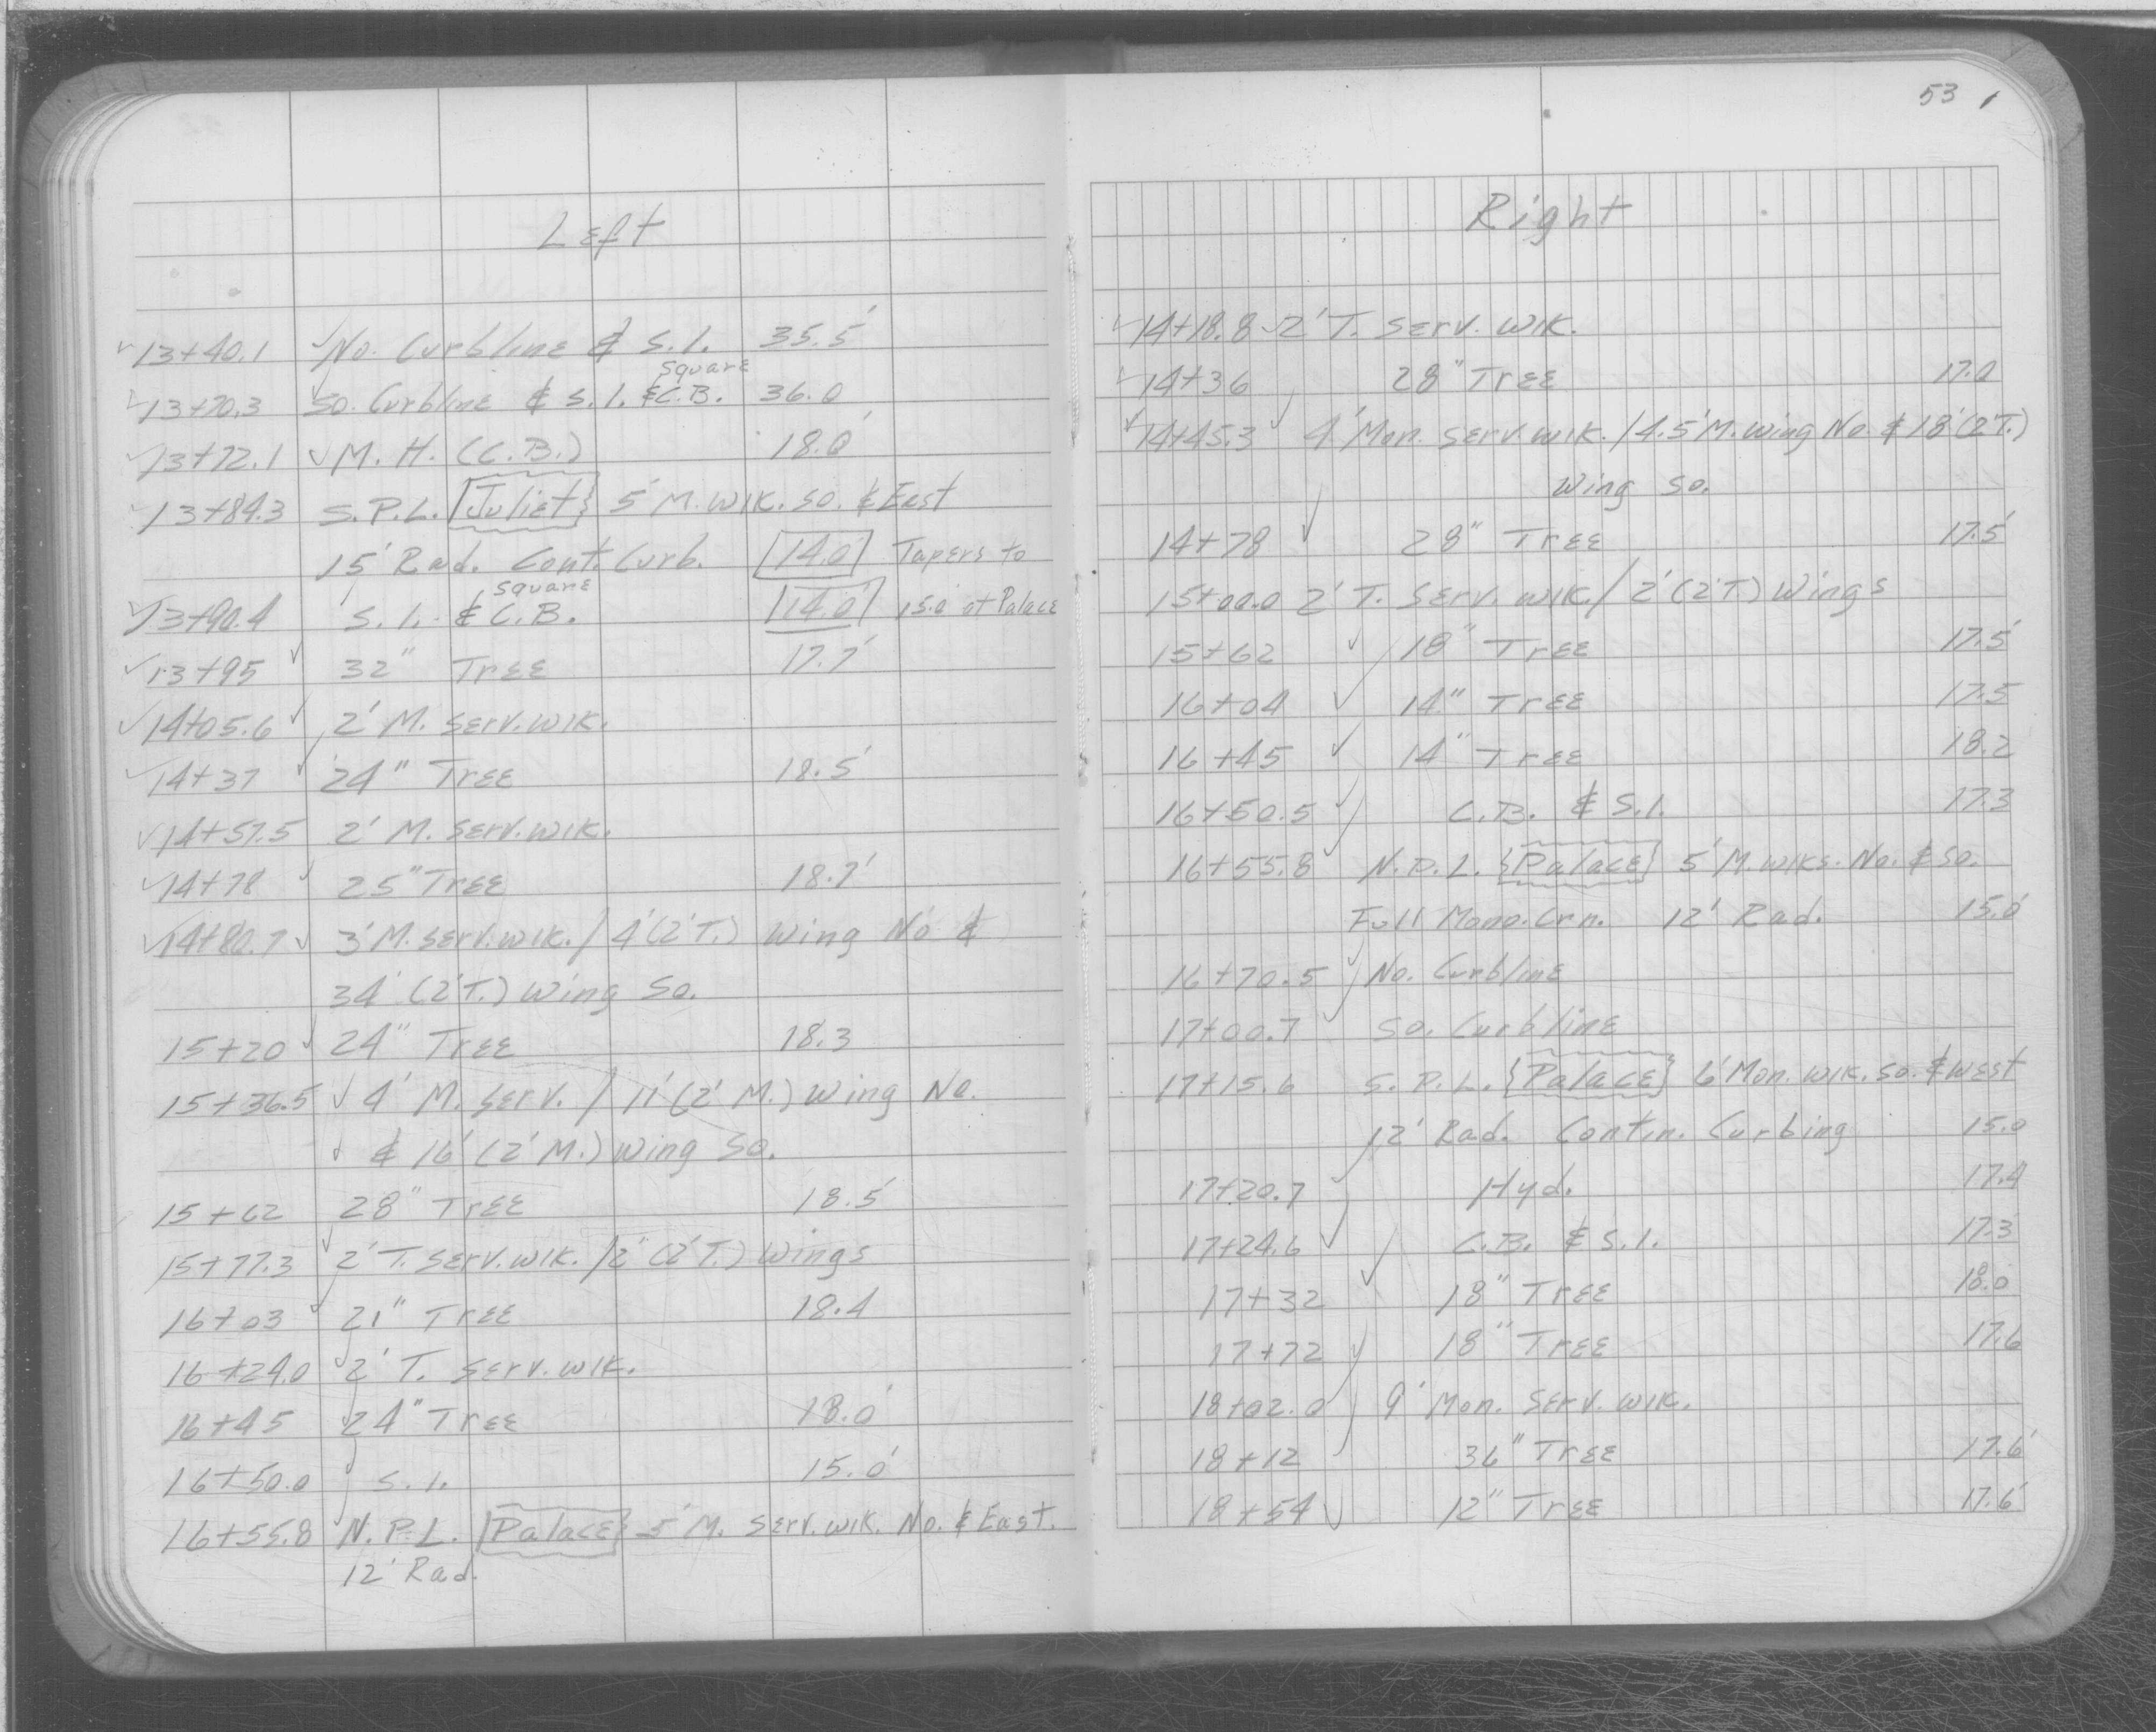 Left
13+40.1 No. Curbline & S.I. 35.5'
square
13+70.3 So. Curbline & S.I. & C.B. 36.0'
13+72.1 M.H. (C.B.) 18.0'
13+84.3 S.P.L. {Juliet} 5' M. wlk. So. & East
15' Rad. Cont. Curb. 14.0' Tapers to
square
13+90.4 S.I. & C.B. 14.0' 15.0' at Palace
13+95 32" Tree 17.7'
14+05.6 2' M. Serv. wlk.
14+37 24" Tree 18.5'
14+57.5 2' M. Serv. wlk.
14+78 25" Tree 18.7'
14+80.7 3' M. serv. wlk. / 4' (2'T.) Wing No. &
34' (2'T.) Wing So.
15+20 24" Tree 18.3
15+36.5 4' M. Serv. / 11' (2' M.) Wing No.
& 16' (2' M.) Wing So.
15+62 28" Tree 18.5'
15+77.3 2' T. Serv. wlk. / 2' (2'T.) Wings
16+03 21" Tree 18.4
16+24.0 2' T. Serv. wlk.
16+45 24" Tree 18.0'
16+50.0 S.I. 15.0'
16+55.8 N.P.L. {Palace} 5' M. Serv. wlk. No. & East.
12' Rad.
53
Right
14+18.8 2' T. Serv. wlk.
14+36 28" Tree 17.0
14+45.3 4' Mon. serv. wlk. / 4.5' M. Wing No. & 18' (2'T.)
Wing So.
14+78 28" Tree 17.5'
15+00.0 2' T. Serv. wlk. / 2' (2'T.) Wings
15+62 18" Tree 17.5'
16+04 14" Tree 17.5
16+45 14" Tree 18.2
16+50.5 C.B. & S.I. 17.3
16+55.8 N.P.L. {Palace} 5' M. wlks. No. & So.
Full Mono. Crn. 12' Rad. 15.0'
16+70.5 No. Curbline
17+00.7 So. Curbline
17+15.6 S.P.L. {Palace} 6' Mon. wlk. So. & West
12' Rad. Contin. Curbing 15.0
17+20.7 Hyd. 17.4
17+24.6 C.B. & S.I. 17.3'
17+32 18" Tree 18.0
17+72 18" Tree 17.6
18+02.0 9' Mon. Serv. wlk.
18+12 36" Tree 17.6'
18+54 12" Tree 17.6'